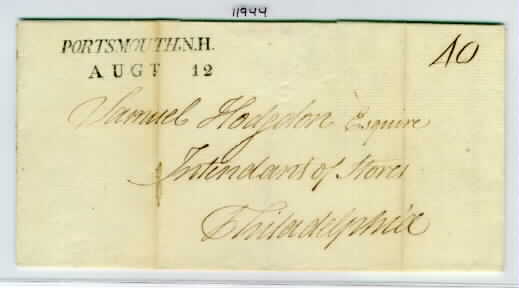 11944
PORTSMOUTH.N.H.
AUGT 12
40
Samuel Hodgdon Esquire
Intendant of Stores
Philadelphia